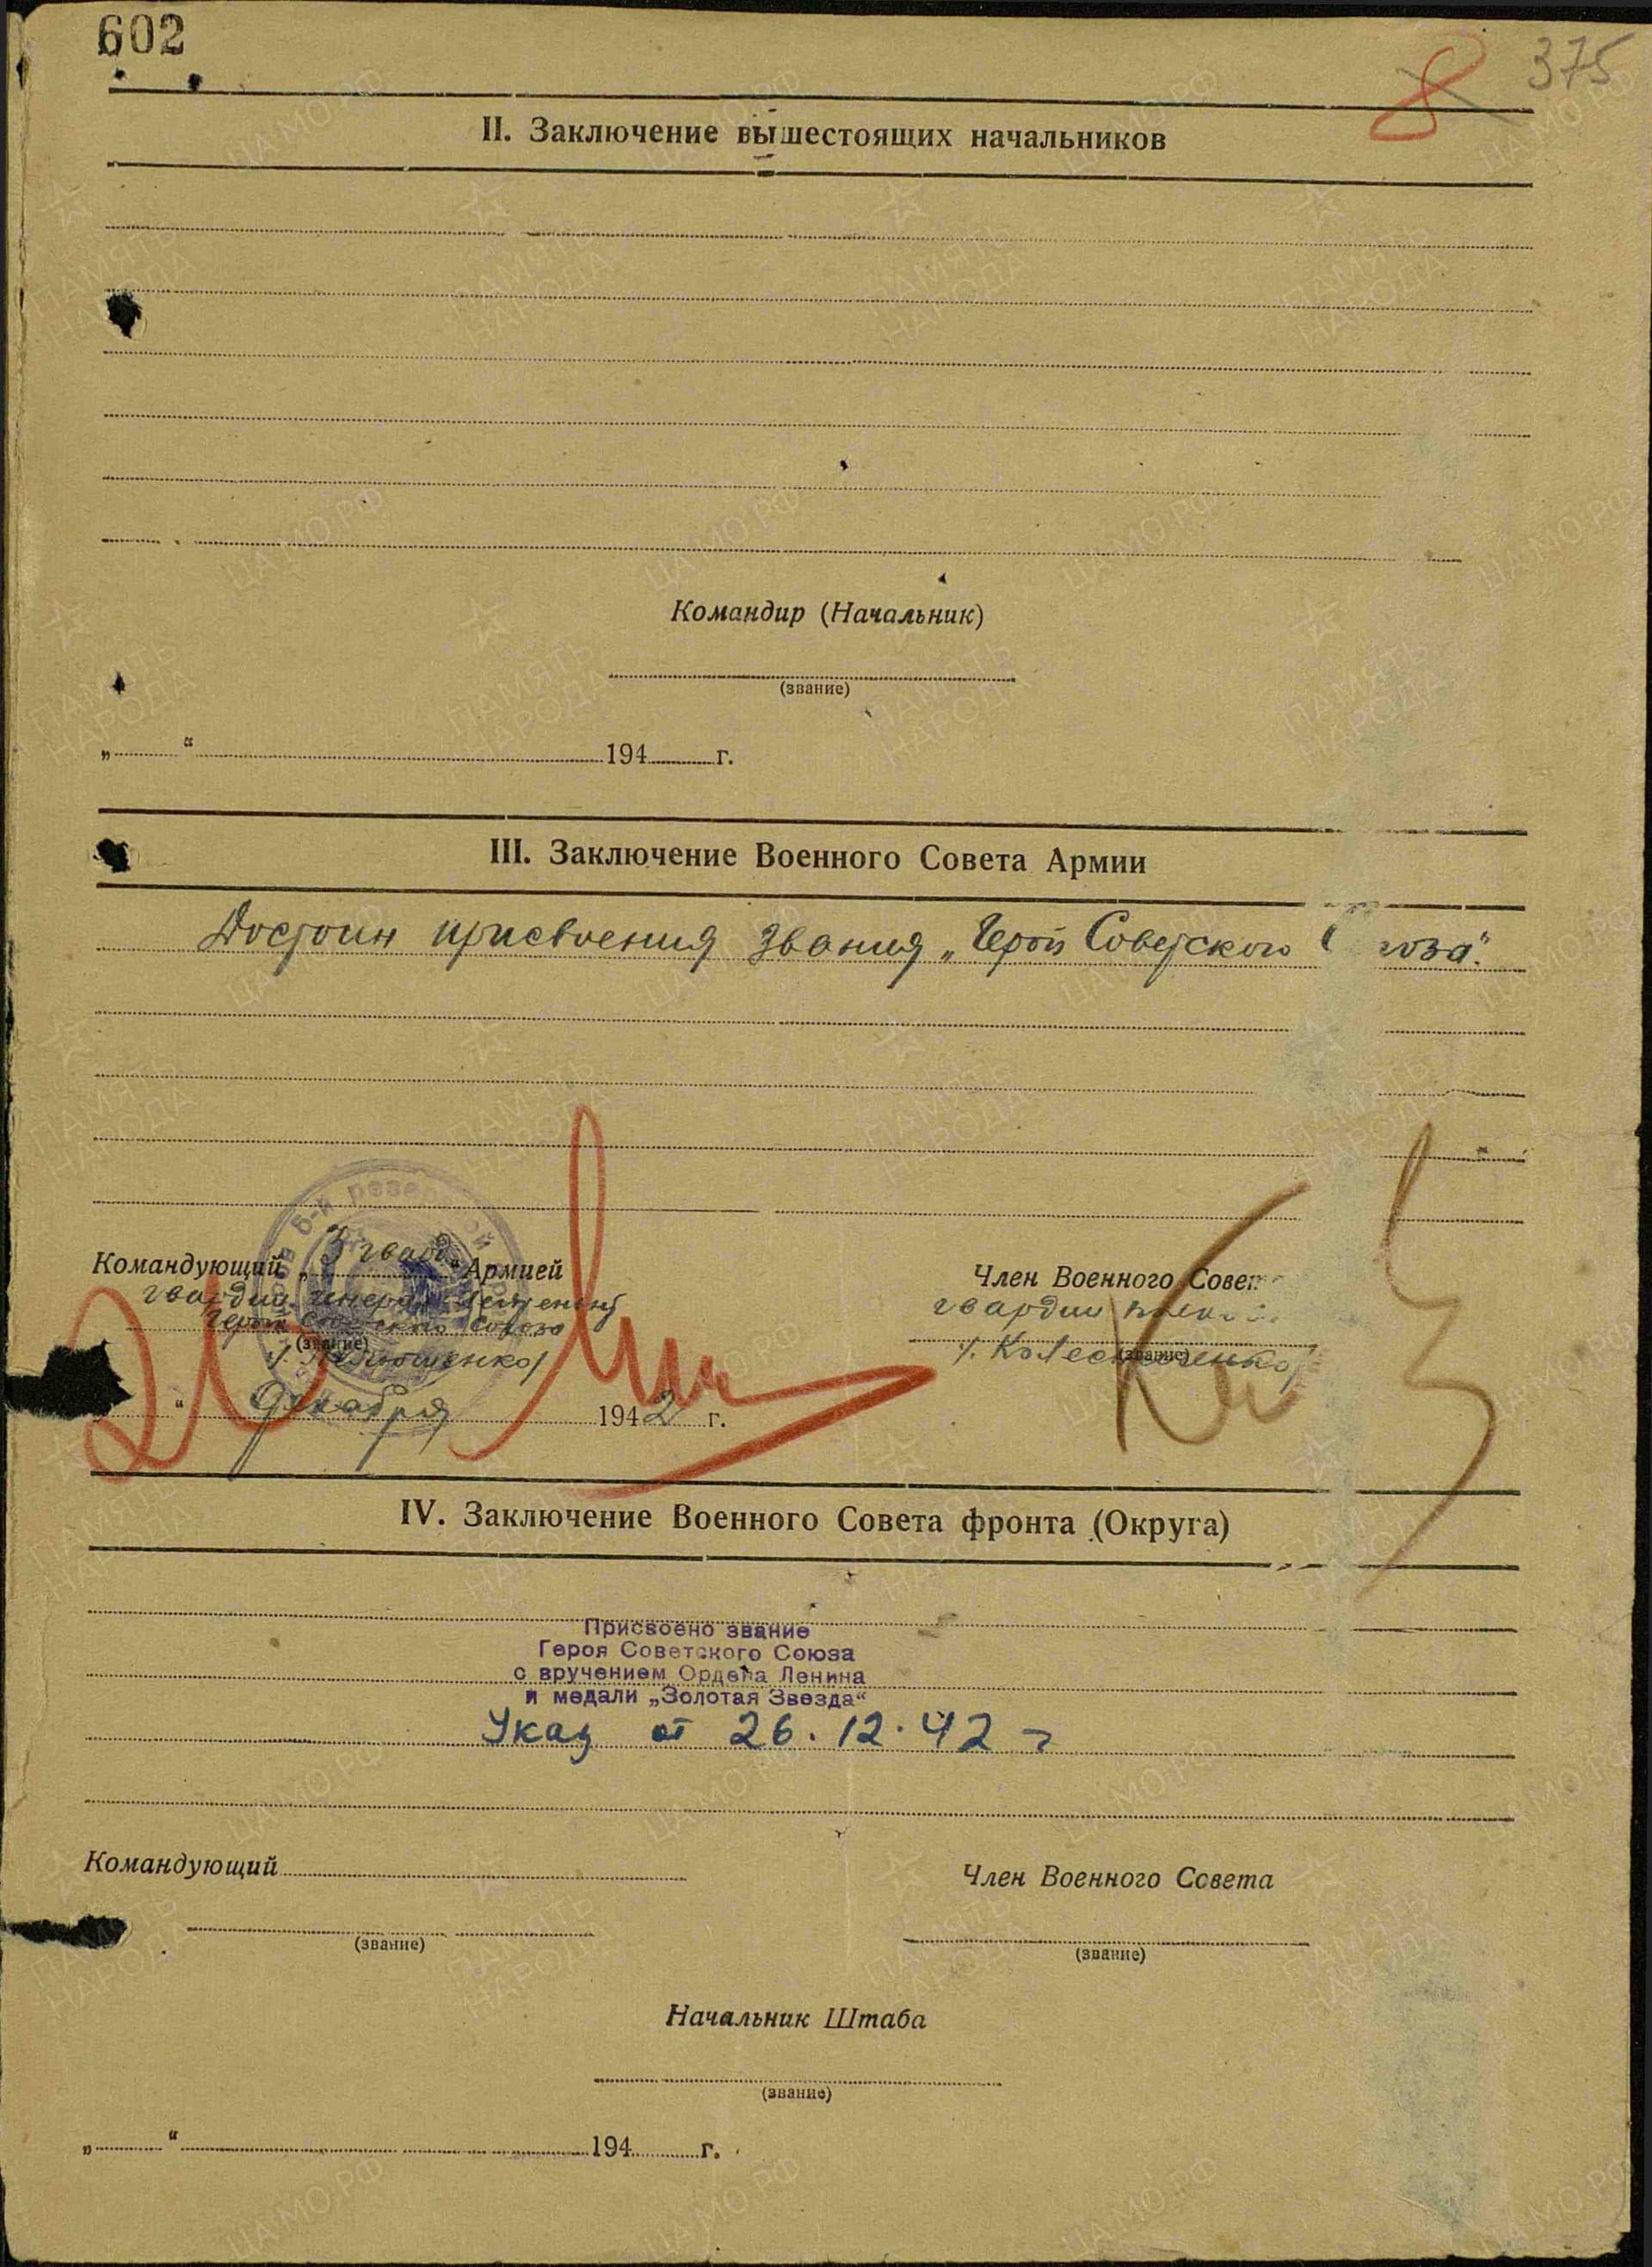 602
8 375
II. Заключение вышестоящих начальников
Командир (Начальник)
(звание)
„ “ 194 г.
III. Заключение Военного Совета Армии
Достоин присвоения звания „Герой Советского С юза".
Командующий „3 гвард.“ Армией
гвардии генерал-лейтенант
Герой Советского Союза
(звание)
/. Лелюшенко/
“ Декабря 1942 г.
Член Военного Совет
гвардии
(звание)
IV. Заключение Военного Совета фронта (Округа)
Присвоено звание
Героя Советского Союза
с вручением Ордена Ленина
и медали „Золотая Звезда“
Указ от 26.12.42 г
Командующий
(звание)
Член Военного Совета
(звание)
Начальник Штаба
(звание)
„ “ 194 г.
ПАМЯТЬ НАРОДА
ЦАМО.РФ